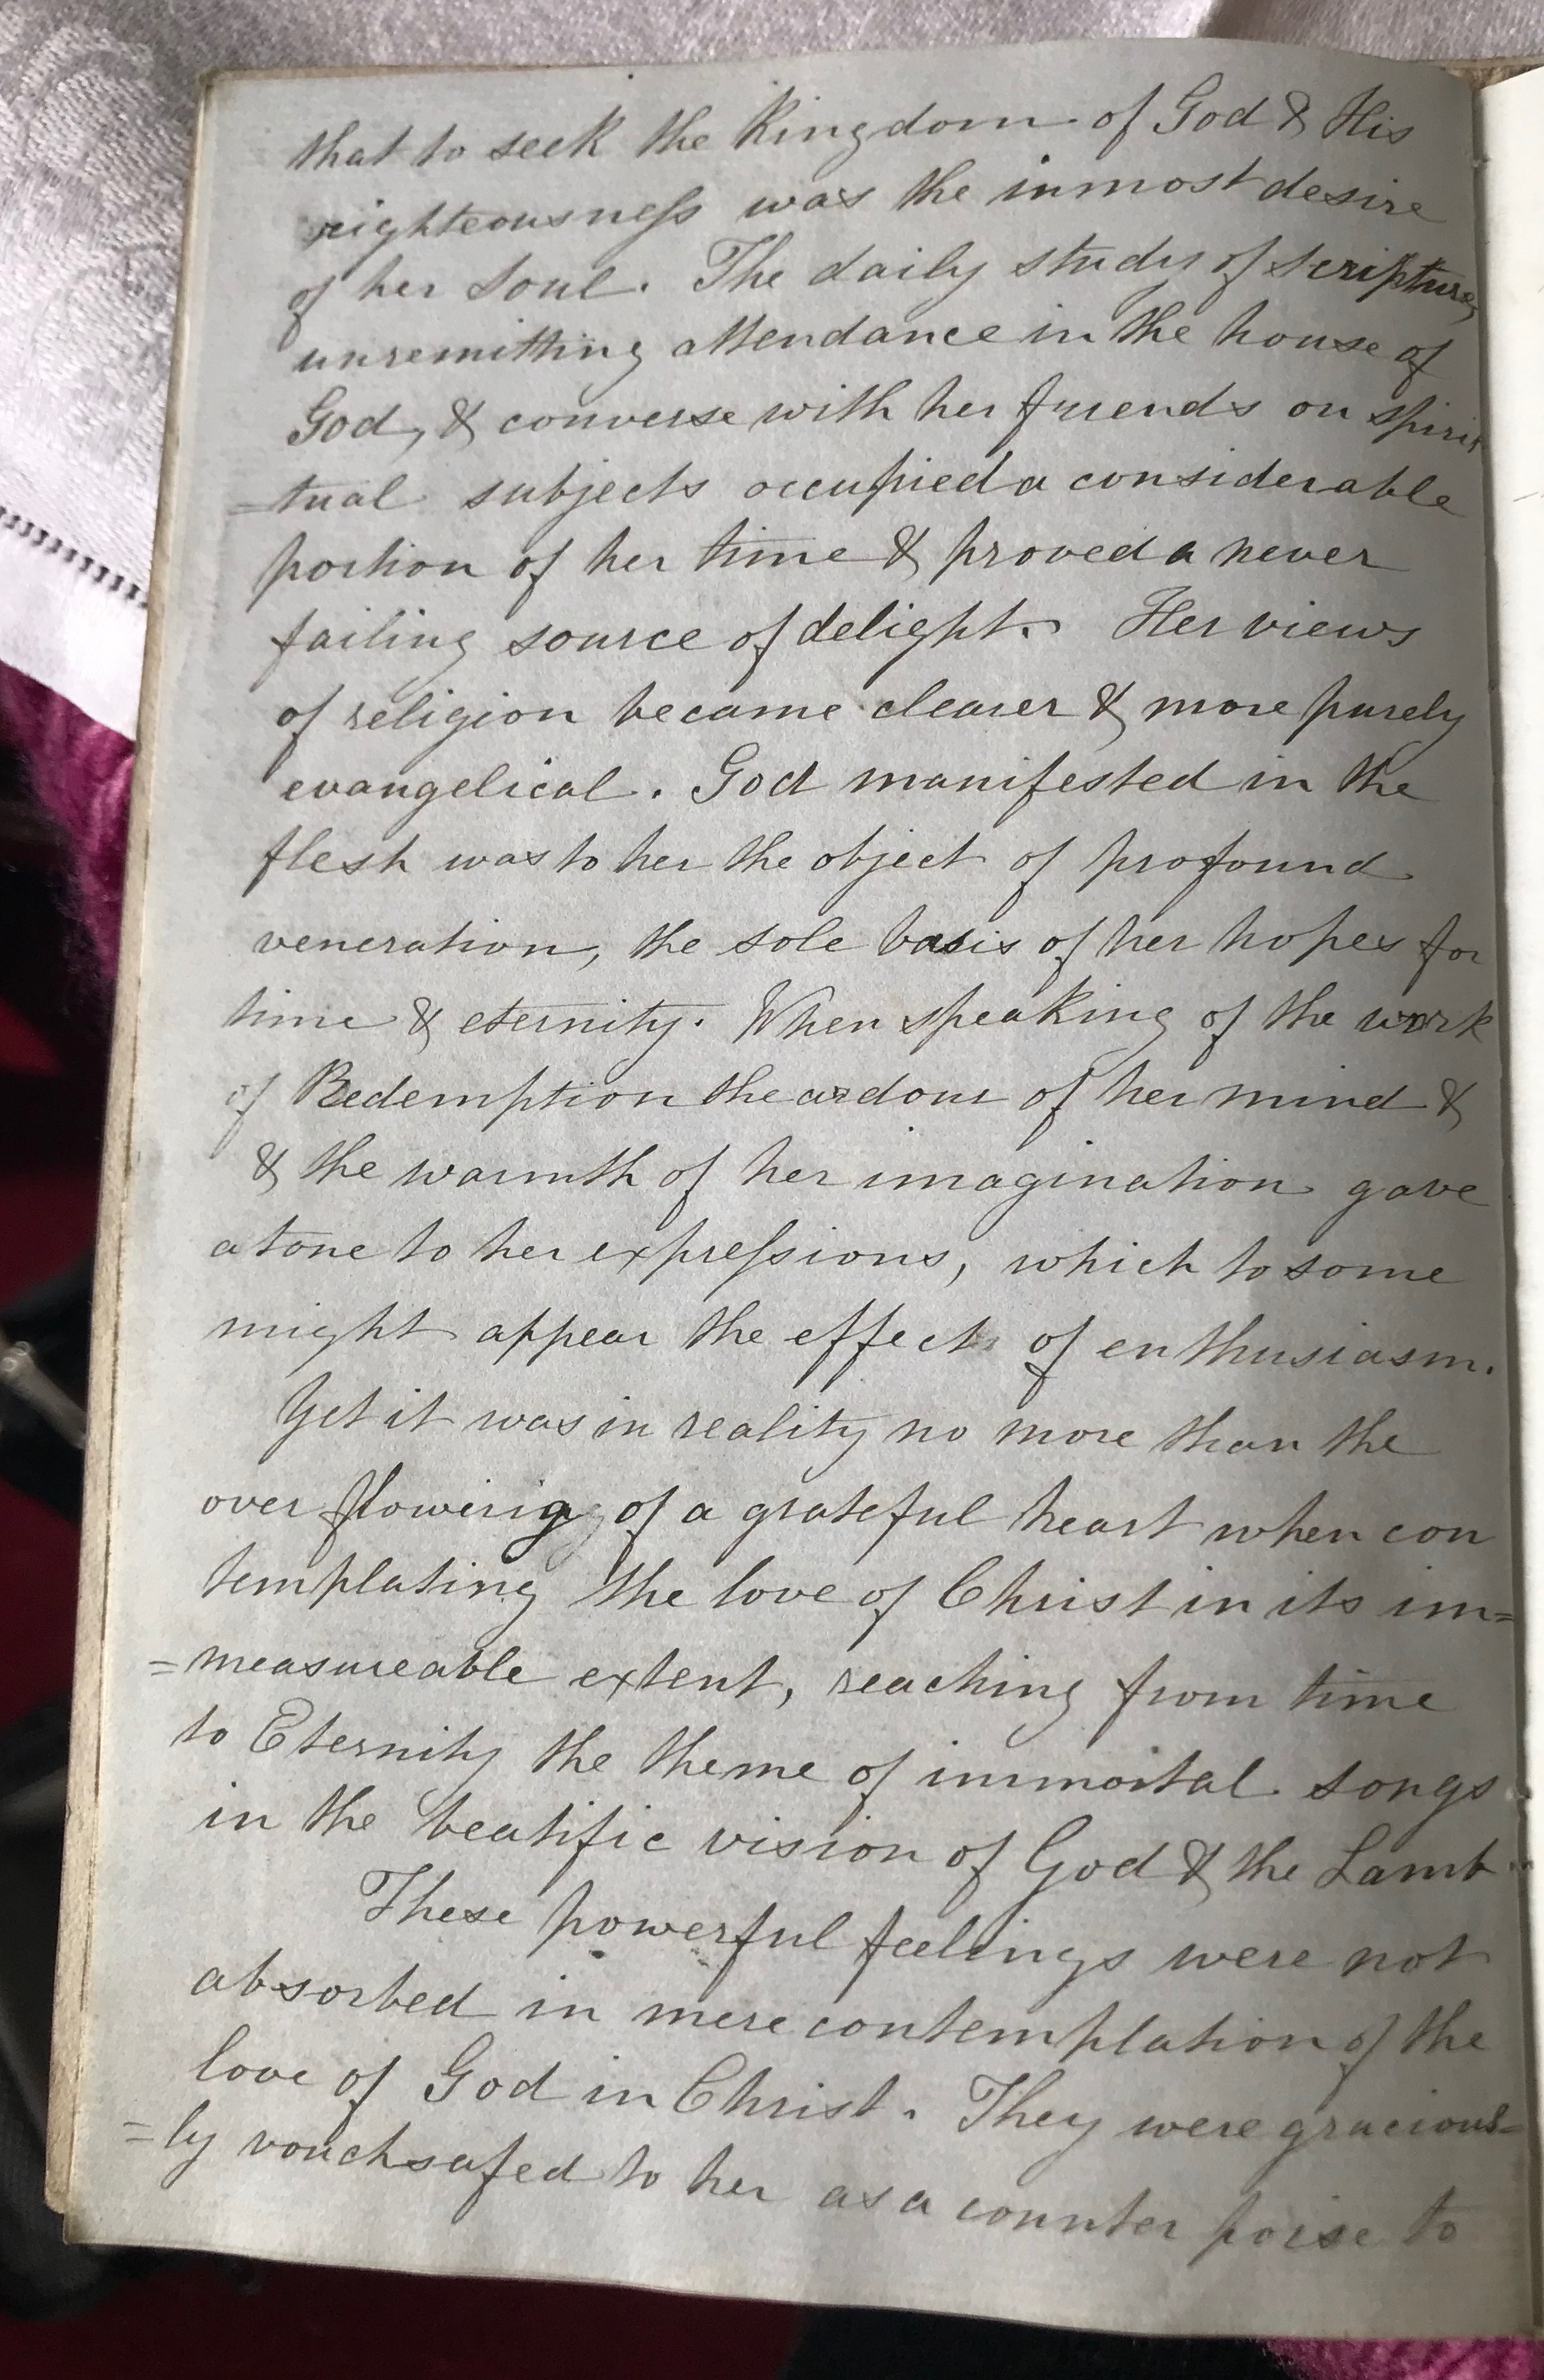 that to seek the Kingdom of God & His
righteousneſs was the inmost desire
of her Soul. The daily study of Scripture,
unremitting attendance in the house of
God, & converse with her friends on spiri
=tual subjects occupied a considerable
portion of her time & proved a never
failing source of delight. Her views
of religion became clearer & more purely
evangelical. God manifested in the
flesh was to her the object of profound
veneration, the sole basis of her hopes for
time & eternity. When speaking of the work
of Redemption the ardour of her mind &
& the warmth of her imagination gave
a tone to her expreſsions, which to some
might appear the effect of enthusiasm.
Yet it was in reality no more than the
over flowing of a grateful heart when con
templating the love of Christ in its im=
=measureable extent, reaching from time
to Eternity the theme of immortal songs
in the beatific vision of God & the Lamb
These powerful feelings were not
absorbed in mere contemplation of the
love of God in Christ. They were gracious=
=ly vouchsafed to her as a counter poise to